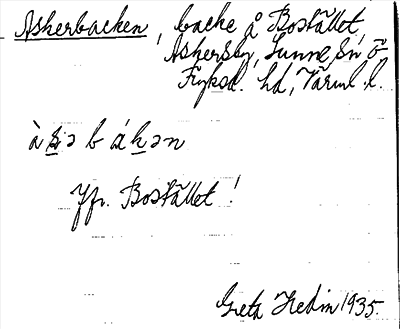 Askerbacken, backe å Bostället,
Askersby, Sunne sn ö
Fryksd. hd, Värml. l.
à s̲ ə b á k̲ ə n
Jfr. Bostället!
Greta Hedin 1935.